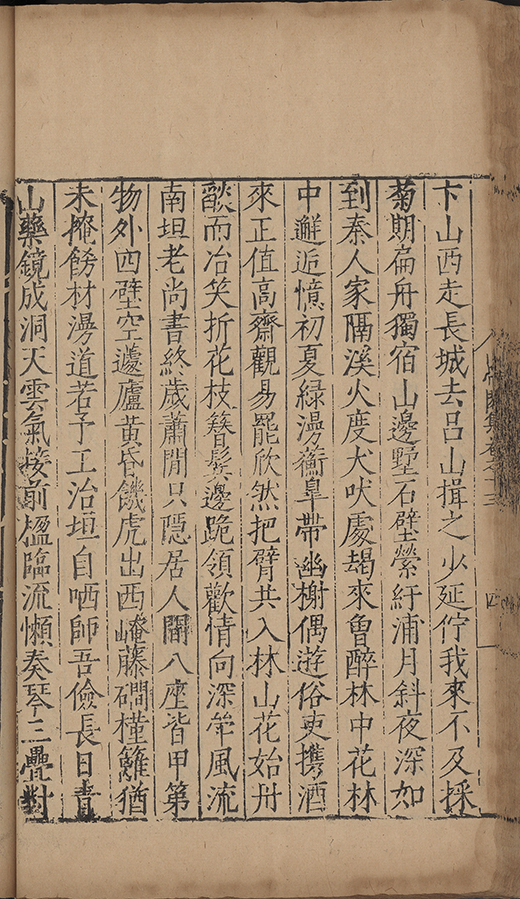 卞山西走長城去呂山揖之少延佇我來不及採
菊期扁舟獨宿山邊墅石壁縈紆浦月斜夜深如
到秦人家隔溪火度犬吠處朅來曾醉林中花林
中邂逅憶初夏綠漫衡皐帶幽榭偶遊俗吏携酒
來正值高齋觀易罷欣然把臂共入林山花始丹
燄而冶笑折花枝簪鬂邊跪領歡情向深斝風流
南坦老尚書終歲蕭閒只隱居人閒八座皆甲第
物外四壁空蘧廬黃昏饑虎出西崦藤磵槿籬猶
未掩髣材漫道若予工治垣自哂師吾儉長日青
山藥鏡成洞天雲氣接前楹臨流懶奏琴三疊對
集卷之十三
四